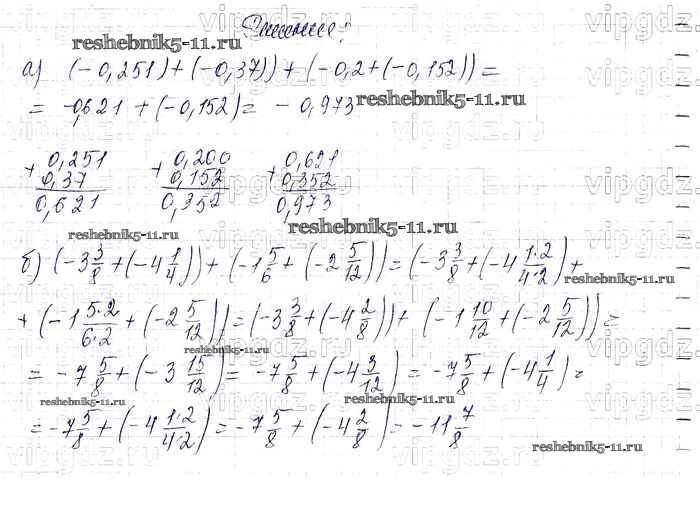 Решение:
а) (-0,251)+(-0,37))+(-0,2+(-0,152))=
= -0,621+(-0,152)= -0,973
+0,251 +0,200 +0,621
0,37 0,152 0,352
0,621 0,352 0,973
б) (-3 3/8+(-4 1/4))+(-1 5/6+(-2 5/12))=(-3 3/8+(-4 1·2/4·2)+
+(-1 5·2/6·2+(-2 5/12))=(-3 3/8+(-4 2/8))+(-1 10/12+(-2 5/12))=
= -7 5/8+(-3 15/12)= -7 5/8+(-4 3/12)= -7 5/8+(-4 1/4)=
= -7 5/8+(-4 1·2/4·2)= -7 5/8+(-4 2/8)= -11 7/8
reshebnik5-11.ru
reshebnik5-11.ru
reshebnik5-11.ru
reshebnik5-11.ru
reshebnik5-11.ru
reshebnik5-11.ru
reshebnik5-11.ru
reshebnik5-11.ru
reshebnik5-11.ru
vipgdz.ru